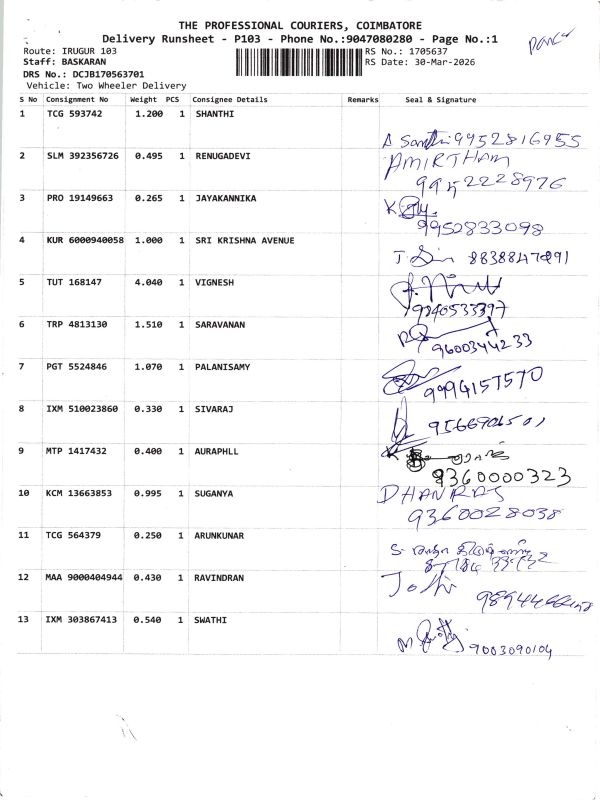 THE PROFESSIONAL COURIERS, COIMBATORE
Delivery Runsheet - P103 - Phone No.:9047080280 - Page No.:1
Route: IRUGUR 103 RS No.: 1705637
Staff: BASKARAN RS Date: 30-Mar-2026
DRS No.: DCJB170563701
Vehicle: Two Wheeler Delivery
S No Consignment No Weight PCS Consignee Details Remarks Seal & Signature
1 TCG 593742 1.200 1 SHANTHI
A Santhi 9952816955
2 SLM 392356726 0.495 1 RENUGADEVI AMIRTHAM
9952228976
3 PRO 19149663 0.265 1 JAYAKANNIKA
9952833098
4 KUR 6000940058 1.000 1 SRI KRISHNA AVENUE
5 TUT 168147 4.040 1 VIGNESH
6 TRP 4813130 1.510 1 SARAVANAN
9600344233
7 PGT 5524846 1.070 1 PALANISAMY
9994157570
8 IXM 510023860 0.330 1 SIVARAJ
9 MTP 1417432 0.400 1 AURAPHLL
9360000323
10 KCM 13663853 0.995 1 SUGANYA DHANRAJ
9360028038
11 TCG 564379 0.250 1 ARUNKUNAR
12 MAA 9000404944 0.430 1 RAVINDRAN
13 IXM 303867413 0.540 1 SWATHI
9003090104